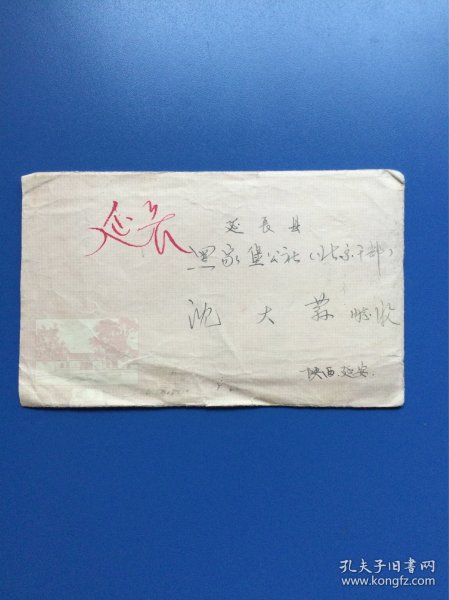 延长
延长县
黑家堡公社(北京干部)
沈大霖 同志收
陕西 延安
孔夫子旧书网
www.kongfz.com